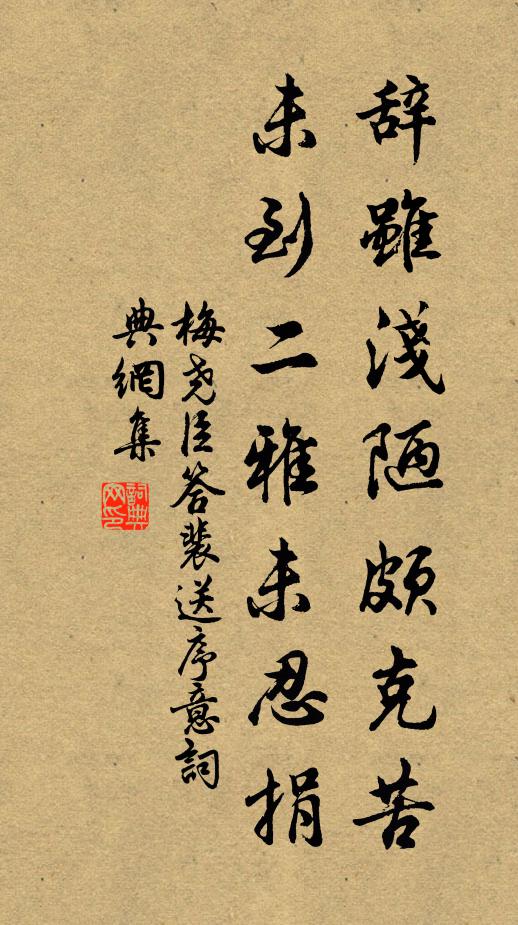 辞雖淺陋頗克苦
未到二雅未忍捐
梅尧臣答裴送序意詞
典網集
詞典網印